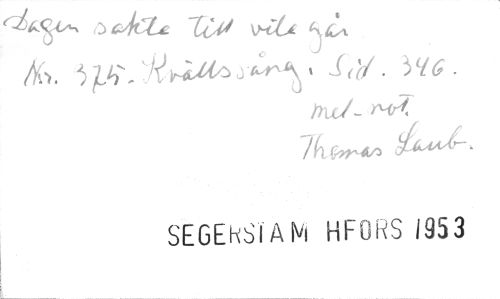 Dagen sakta till vila går
Nr. 375. Kvällssång. Sid. 346.
mel-not.
Thomas Laub.
SEGERSTAM HFORS 1953